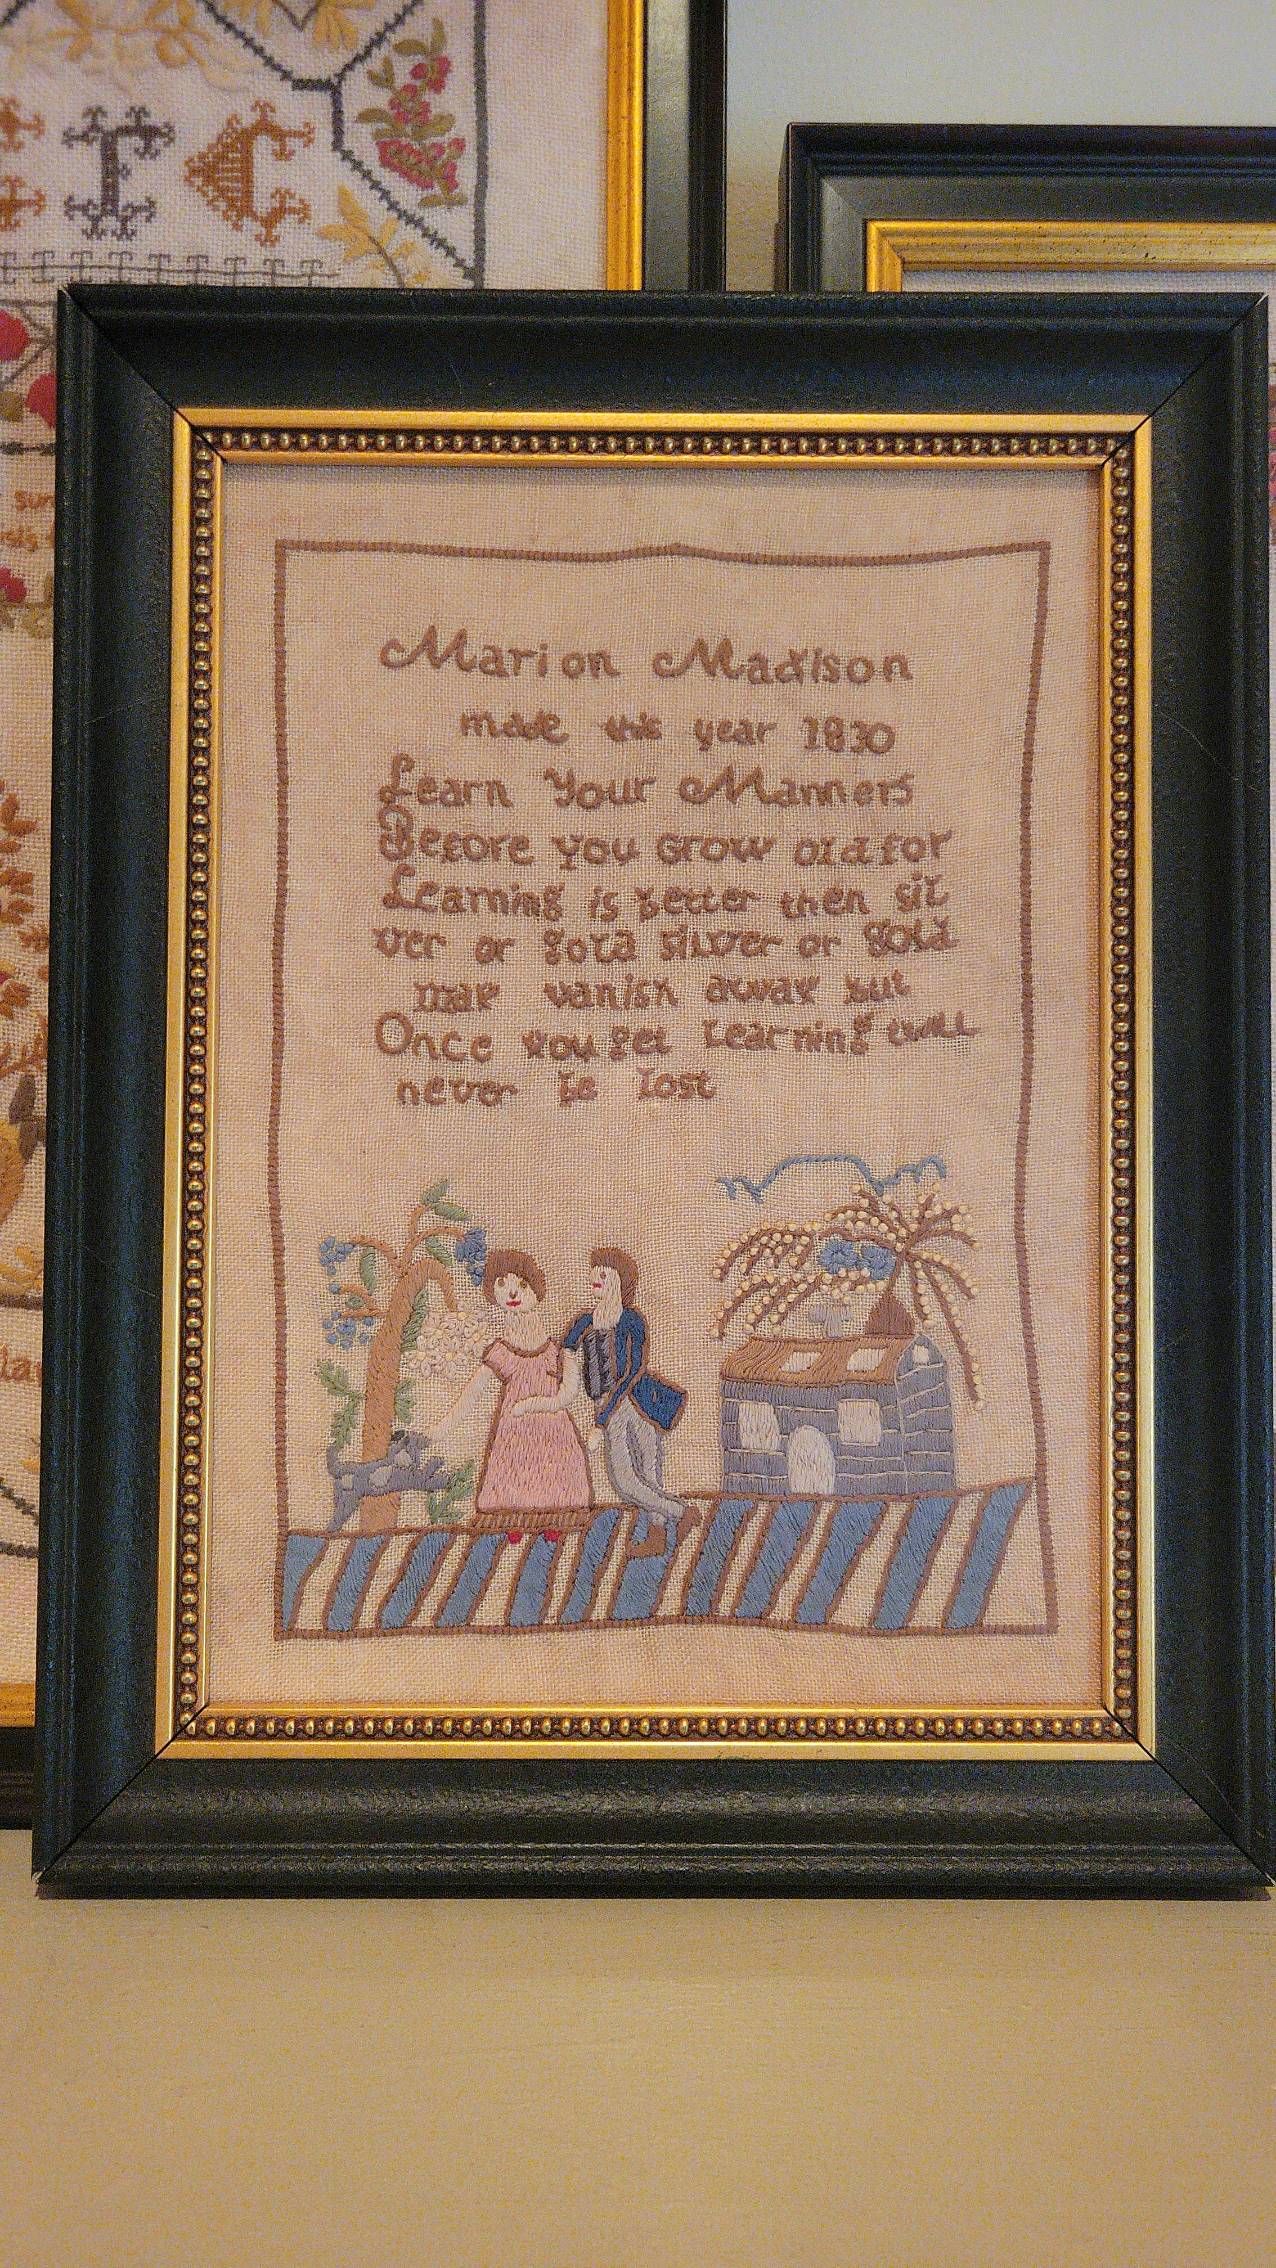 Marion Madison
made this year 1830
Learn Your Manners
Before you Grow old for
Learning is better then sil
ver or gold silver or gold
may vanish away but
Once you get Learning twill
never be lost